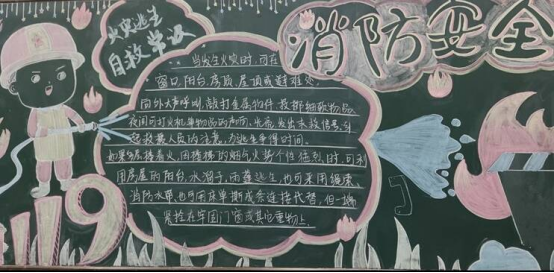 火灾逃生
自救常识
消防安全
当发生火灾时,可在
窗口、阳台、房顶、屋顶或避难处,
向外大声呼喊,敲打金属物件、投掷细软物品、
夜间可打火机等物品的声响、光亮,发出求救信号,引
起救援人员的注意,为逃生争得时间。
如果房屋着火,而楼梯的烟气火势个性猛烈时,可利
用房屋的阳台、水溜子、雨篷逃生,也可采用绳索、
消防水带,也可用床单撕成条连接代替,但一端
紧拴在牢固门窗或其它重物上
119